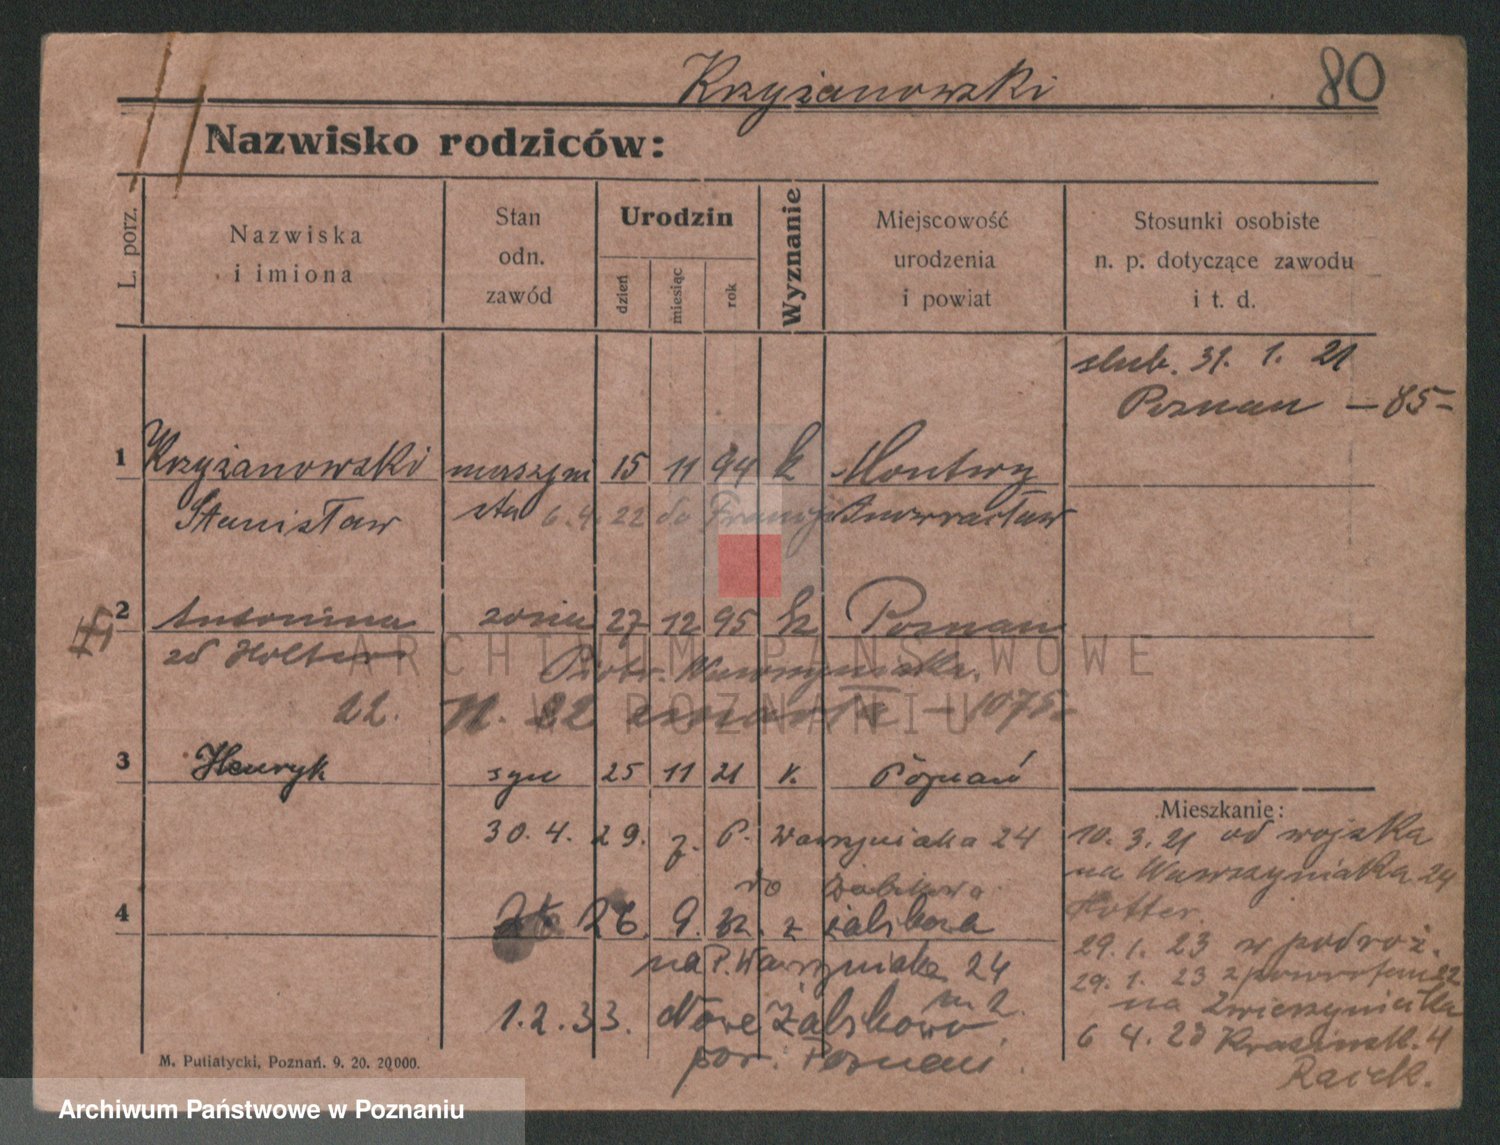 Krzyżanowski
80
Nazwisko rodziców:
L. porz.
Nazwiska
i imiona
Stan
odn.
zawód
Urodzin
dzień
miesiąc
rok
Wyznanie
Miejscowość
urodzenia
i powiat
Stosunki osobiste
n. p. dotyczące zawodu
i t. d.
slub. 31. 1. 21
Poznan — 85 –
1 Krzyżanowski maszyni 15 11 94 k Montwy
Stanisław sta 6.4.22 do Francji Inowracław
2 Antonina zona 27 12 95 k Poznan
zd Piotr. Wawrzyniaka.
22. 11. 22 zmarła – 1075 –
3 Henryk syn 25 11 21 k. Poznań
30. 4. 29. z. P. Wawrzyniaka 24
do Żabikowa
4 26. 9. 32. z Żabikowa
na P. Wawrzyniaka 24
1. 2. 33. Nowe Żabikowo
m 2.
pow. Poznań.
Mieszkanie:
10. 3. 21 od wojska
na Wawrzyniaka 24
29. 1. 23 w podróż.
29. 1. 23 z powrotem
na Zwierzyniecka
6 4. 23 Krasinsk. 4
M. Putiatycki, Poznań. 9. 20. 20000.
ARCHIWUM PAŃSTWOWE
W POZNANIU
Archiwum Państwowe w Poznaniu